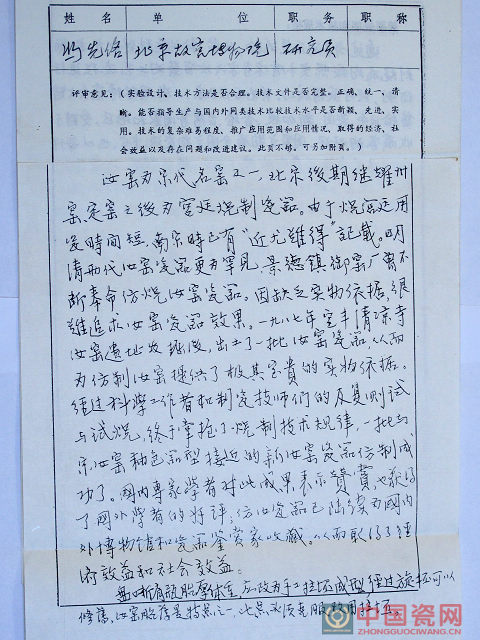 姓 名 单 位 职务 职 称
冯先铭 北京故宫博物院 研究员
评审意见：（实验设计、技术方法是否合理。技术文件是否完整。正确、统一、清
晰。能否指导生产与国内外同类技术比较技术水平是否新颖、先进、实
用。技术的复杂难易程度、推广应用范围和应用情况，取得的经济、社
会效益以及存在问题和改进建议。此页不够，可另加附页。）
汝窑为宋代名窑之一，北宋後期继耀州
窑、定窑之後为宫廷烧制瓷器。由于烧宫廷用
瓷時间短，南宋時已有“近尤难得”记载。明
清两代汝窑瓷器更为罕见，景德镇御窑厂曾不
断奉命仿烧汝窑瓷器。因缺乏实物依据，很
难追求汝窑瓷器效果。一九八七年宝丰清凉寺
汝窑遗址发掘後，出土了一批汝窑瓷器，从而
为仿制汝窑提供了极其宝贵的实物依据。
经过科学工作者和制瓷技师们的反复测试
与试烧，终于掌握了烧制技术规律，一批与
宋汝窑釉色器型接近的新汝窑瓷器仿制成
功了。国内專家学者对此成果表示赞賞，也获得
了国外学者的好评；仿汝瓷器已陆续为国内
外博物馆和瓷器鉴赏家收藏。从而取得了经
济效益和社会效益。
应改为手工拉坯成型经过旋坯可以
中国瓷网
ZHONGGUOCIWANG.CN